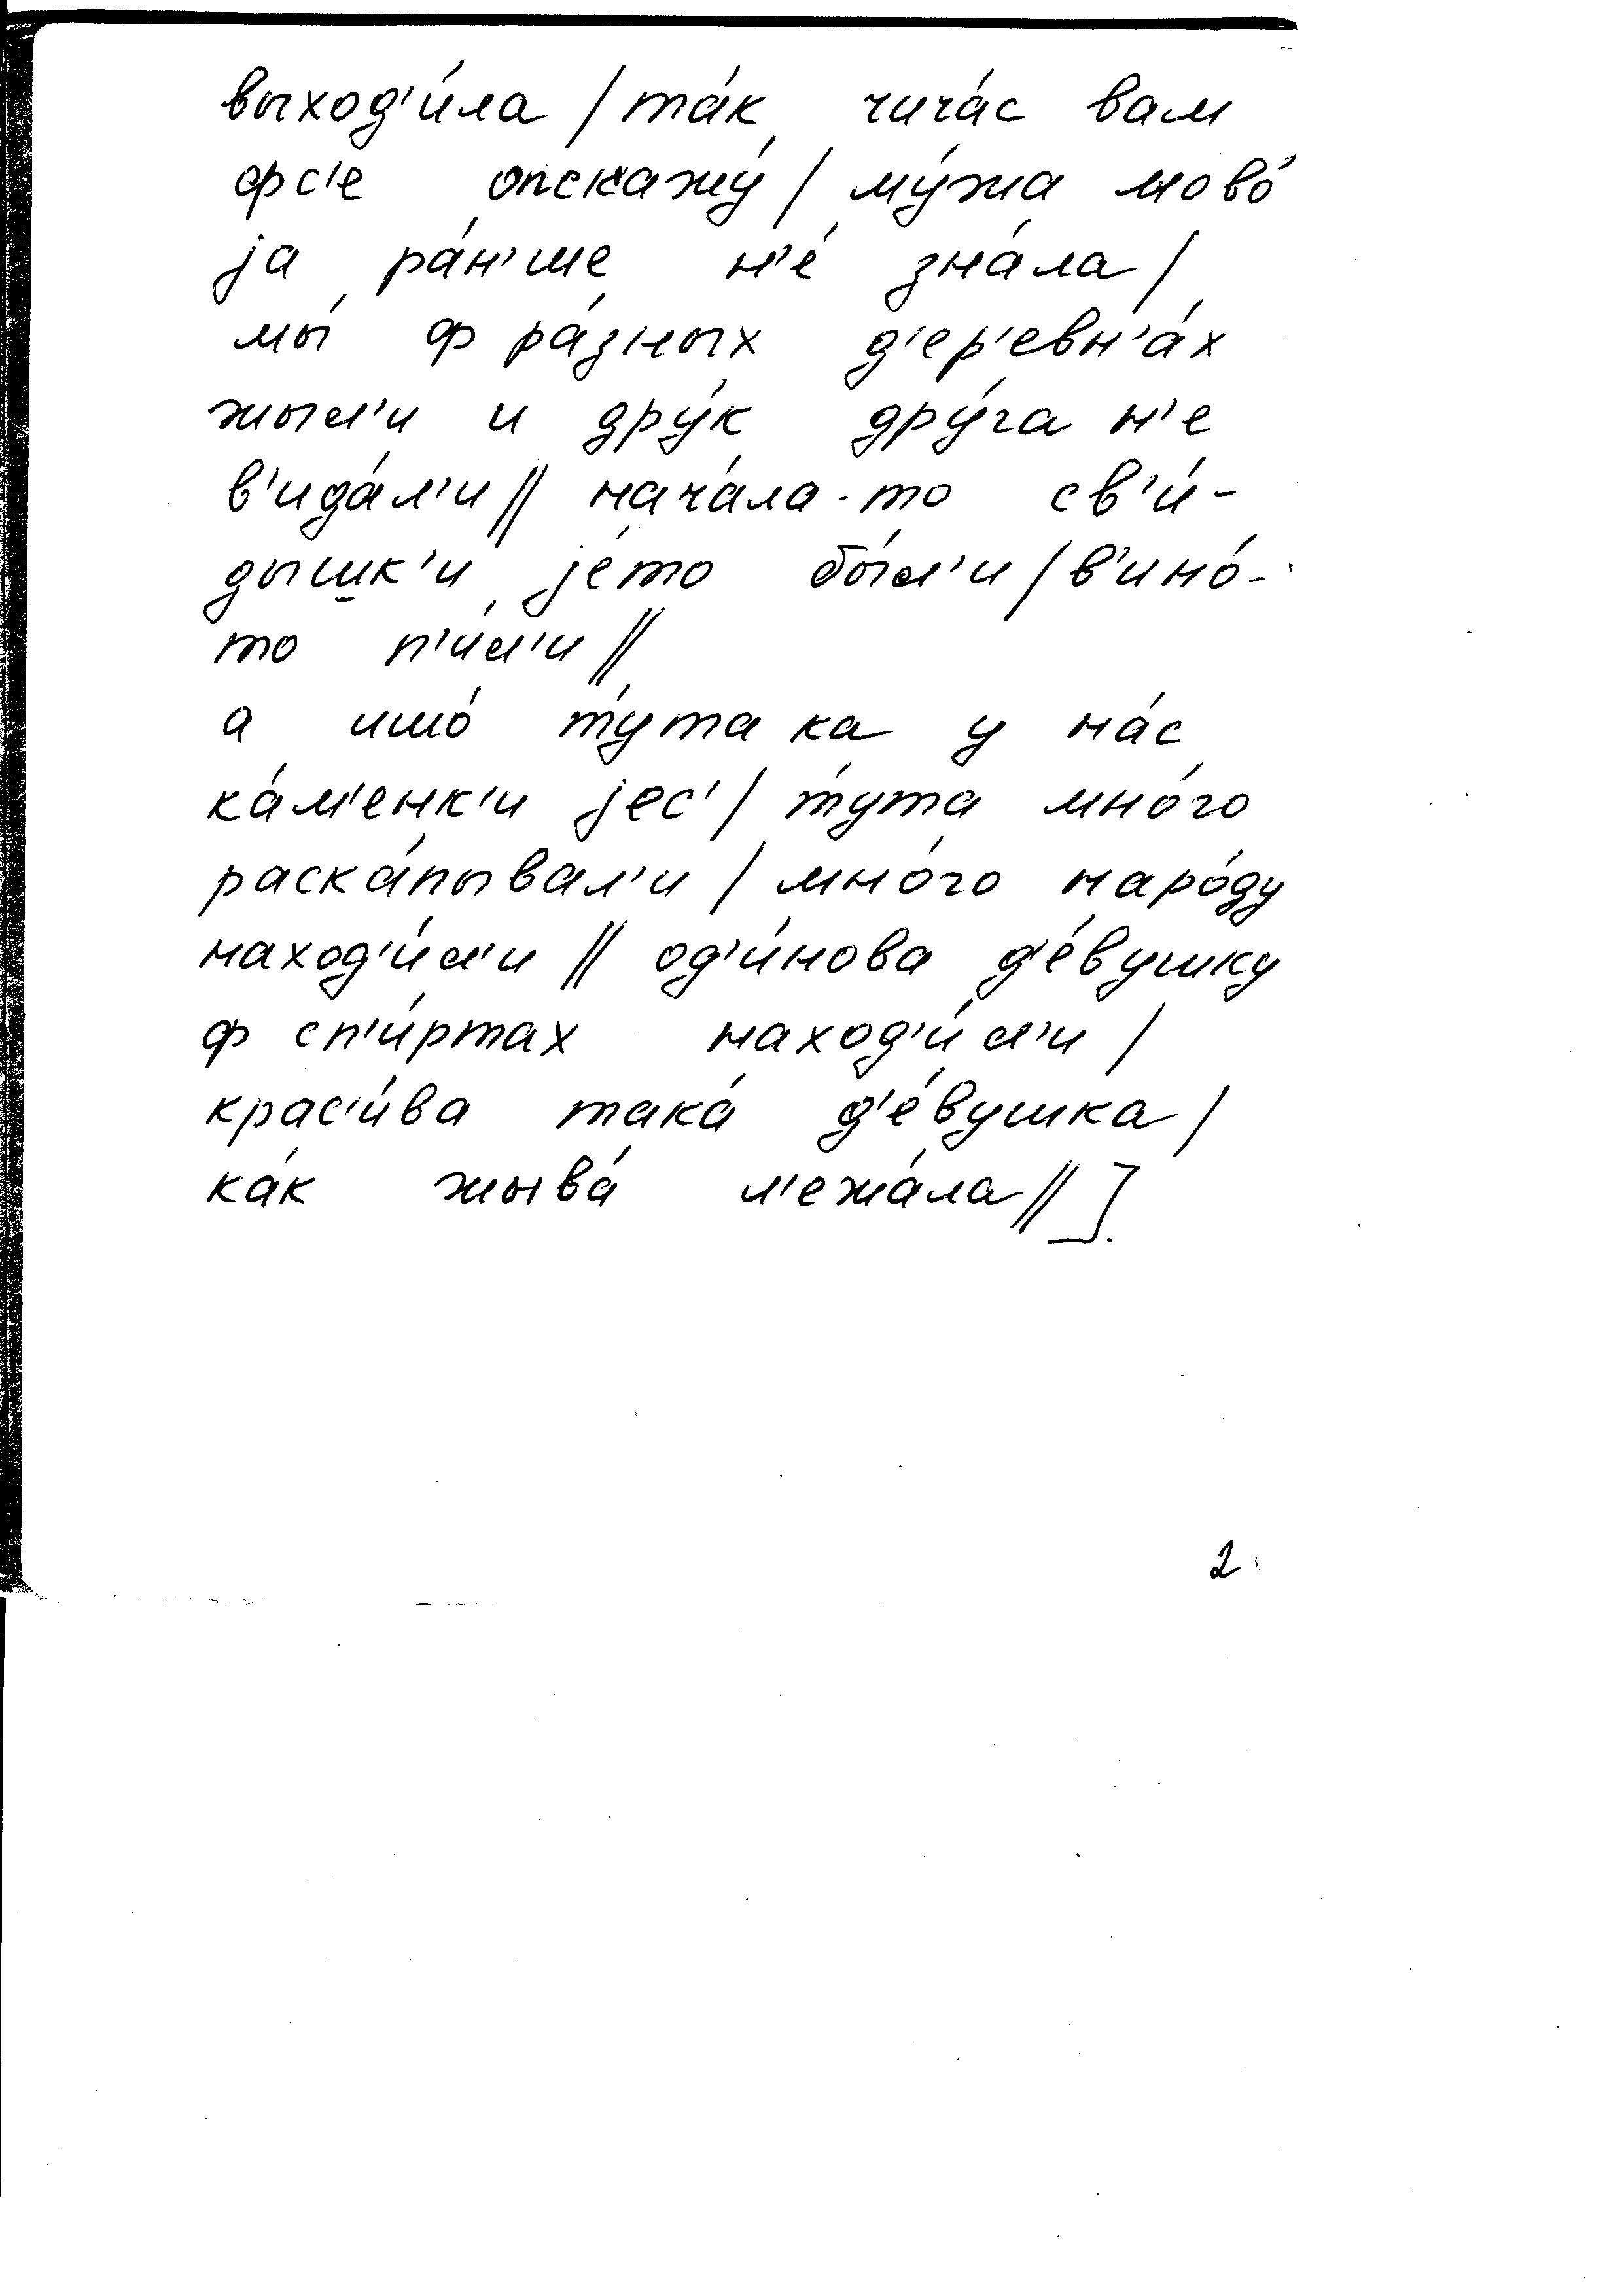 выход'и́ла / та́к чича́с вам
фс'е опскажу́ / му́жа мово́
jа ра́н'ше н'е́ зна́ла /
мы́ ф ра́зных д'ер'евн'а́х
жыл'и и дру́к дру́га н'е
в'ида́л'и // нача́ла-то св'и́-
дышк'и jе́то бы́л'и / в'ино́-
то п'и́л'и //
а ишо́ ту́така у на́с
ка́м'енк'и jес' / ту́та мно́го
раска́пывал'и / мно́го наро́ду
наход'и́л'и // од'и́нова д'е́вушку
ф сп'и́ртах наход'и́л'и /
крас'и́ва така́ д'е́вушка /
ка́к жыва́ л'ежа́ла // ].
2